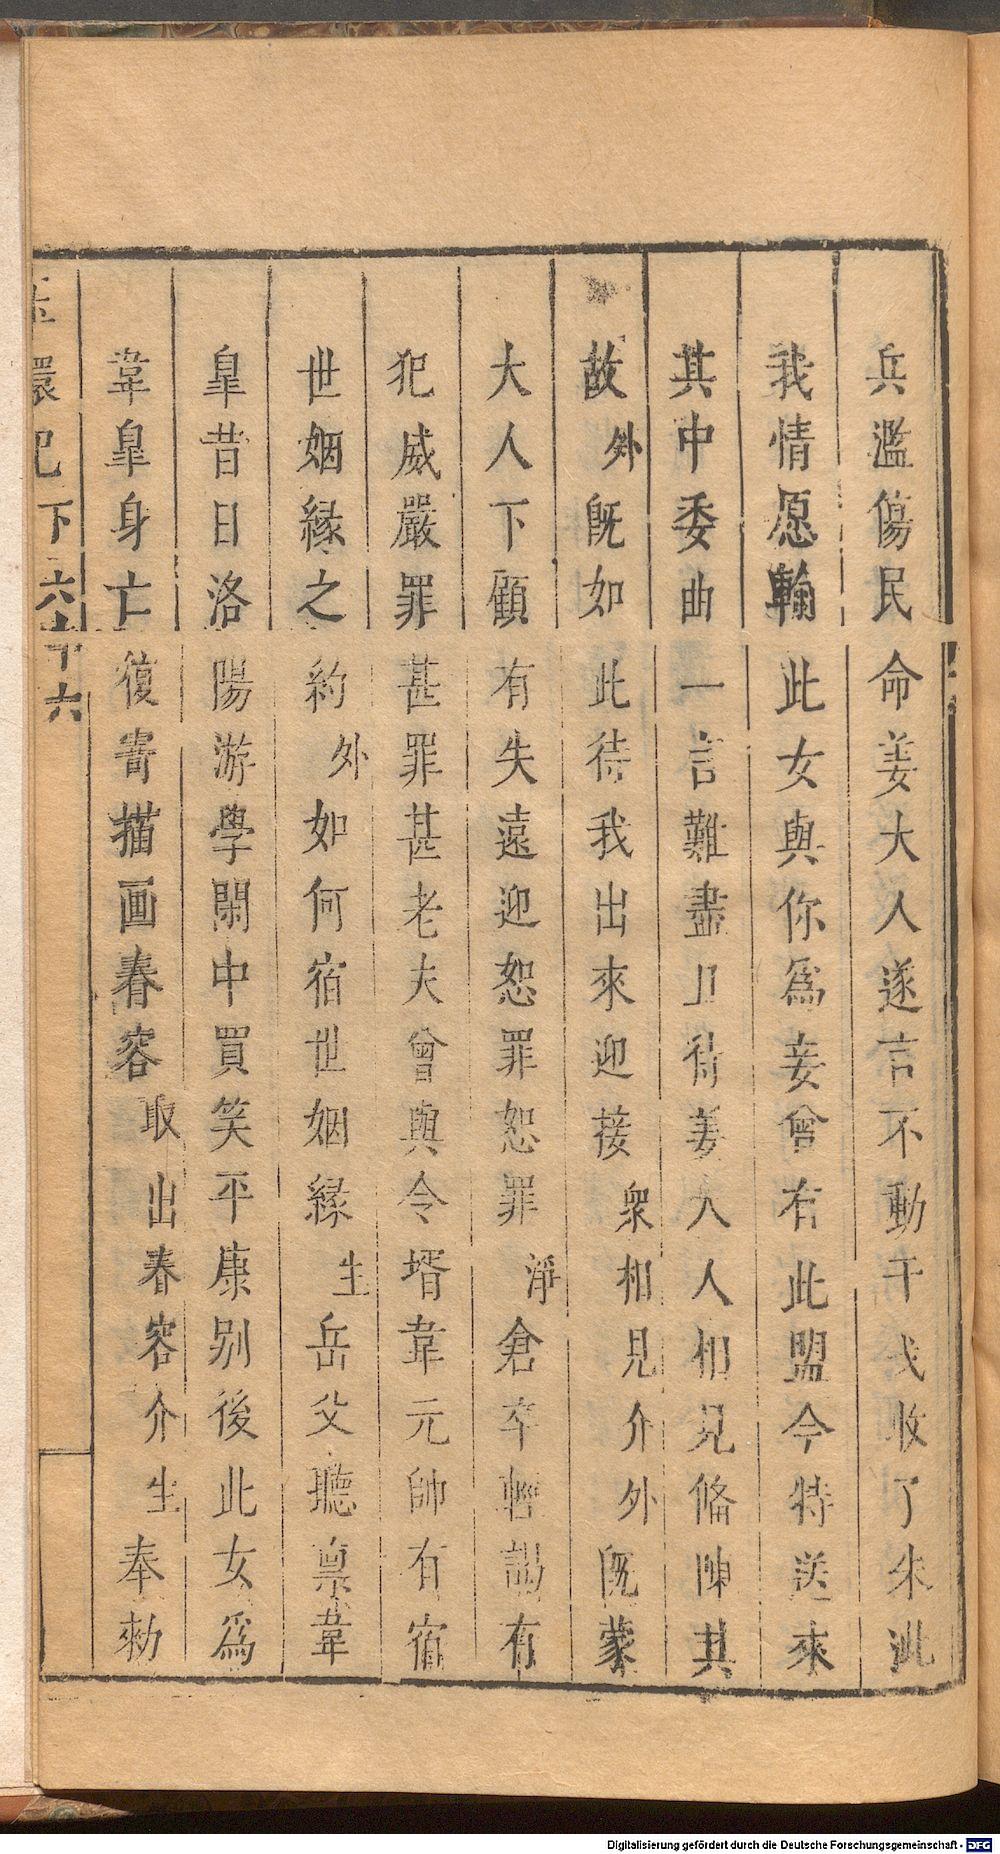 兵濫傷民命姜大人遂言不動干戈收了朱泚
我情愿輸此女與你爲妾曾有此盟今特送來
其中委曲一言難盡待姜大人相見俻陳其
故外既如此待我出來迎接衆相見介外既蒙
大人下顧有失遠迎恕罪恕罪淨倉卒輕謁有
犯威嚴罪甚罪甚老夫曾與令壻韋元帥有宿
世姻緣之約外如何宿世姻緣生岳父聽禀韋
皐昔日洛陽游學閑中買笑平康别後此女爲
韋皐身亡復寄描画春容取出春容介生奉勑
環記下 六十六
Digitalisierung gefördert durch die Deutsche Forschungsgemeinschaft - DFG